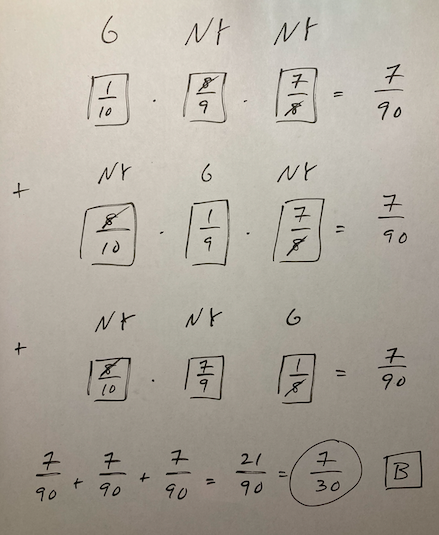 G NY NY
1/10 · 8/9 · 7/8 = 7/90
+ NY G NY
8/10 · 1/9 · 7/8 = 7/90
+ NY NY G
8/10 · 7/9 1/8 = 7/90
7/90 + 7/90 + 7/90 = 21/90 = 7/30 B